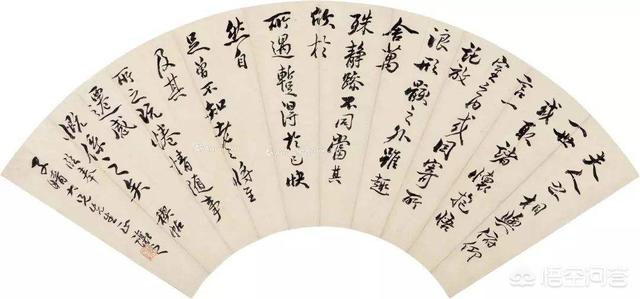 夫人之相與俯仰
一世
或取諸懷抱悟
言一
室之內或因寄所
託放
浪形骸之外雖趣
舍萬
殊静躁不同當其
欣於
所遇暫得於己快
然自
足曾不知老之將至
及其
所之既惓情隨事
遷感
慨係之矣 禊帖
子晴大兄先生正
悟空问答